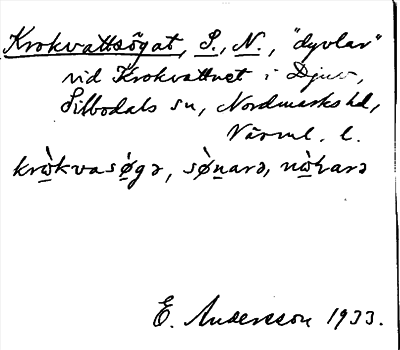 Krokvattsögat, S., N., "dyvlar"
vid Krokvattnet i Djuv,
Silbodals sn, Nordmarks hd,
Värml. l.
krὼkvasø̀gə, sø̀narə, nὼrarə
E. Andersson 1933.